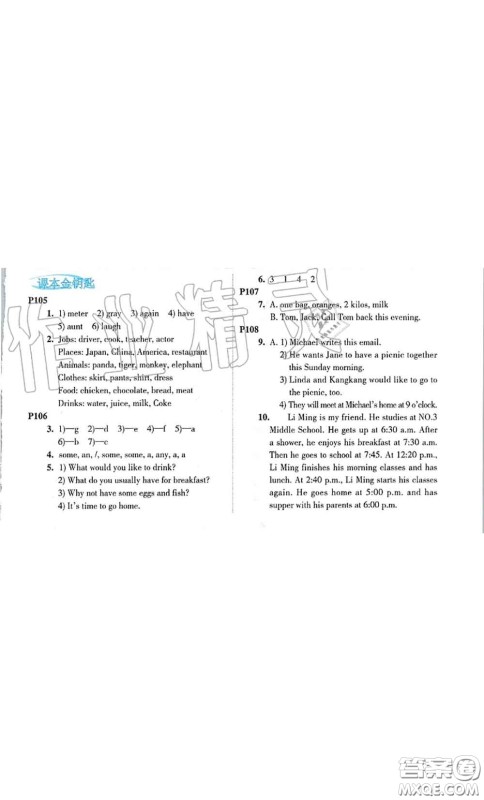 课本金钥匙
P105
1. 1) meter 2) gray 3) again 4) have
5) aunt 6) laugh
2. Jobs: driver, cook, teacher, actor
Places: Japan, China, America, restaurant
Animals: panda, tiger, monkey, elephant
Clothes: skirt, pants, shirt, dress
Food: chicken, chocolate, bread, meat
Drinks: water, juice, milk, Coke
P106
3. 1)—g 2)—d 3)—e 4)—f 5)—a
6)—b 7)—c
4. some, an, /, some, some, a, any, a, a
5. 1) What would you like to drink?
2) What do you usually have for breakfast?
3) Why not have some eggs and fish?
4) It's time to go home.
6. 3 1 4 2
P107
7. A. one bag, oranges, 2 kilos, milk
B. Tom, Jack, Call Tom back this evening.
P108
9. A. 1) Michael writes this email.
2) He wants Jane to have a picnic together
this Sunday morning.
3) Linda and Kangkang would like to go to
the picnic, too.
4) They will meet at Michael's home at 9 o'clock.
10. Li Ming is my friend. He studies at NO.3
Middle School. He gets up at 6:30 a.m. After
a shower, he enjoys his breakfast at 7:30 am.
Then he goes to school at 7:45. At 12:20 p.m.,
Li Ming finishes his morning classes and has
lunch. At 2:40 p.m., Li Ming starts his classes
again. He goes home at 5:00 p.m. and has
supper with his parents at 6:00 p.m.
作业精灵
答案圈
MXQE.COM